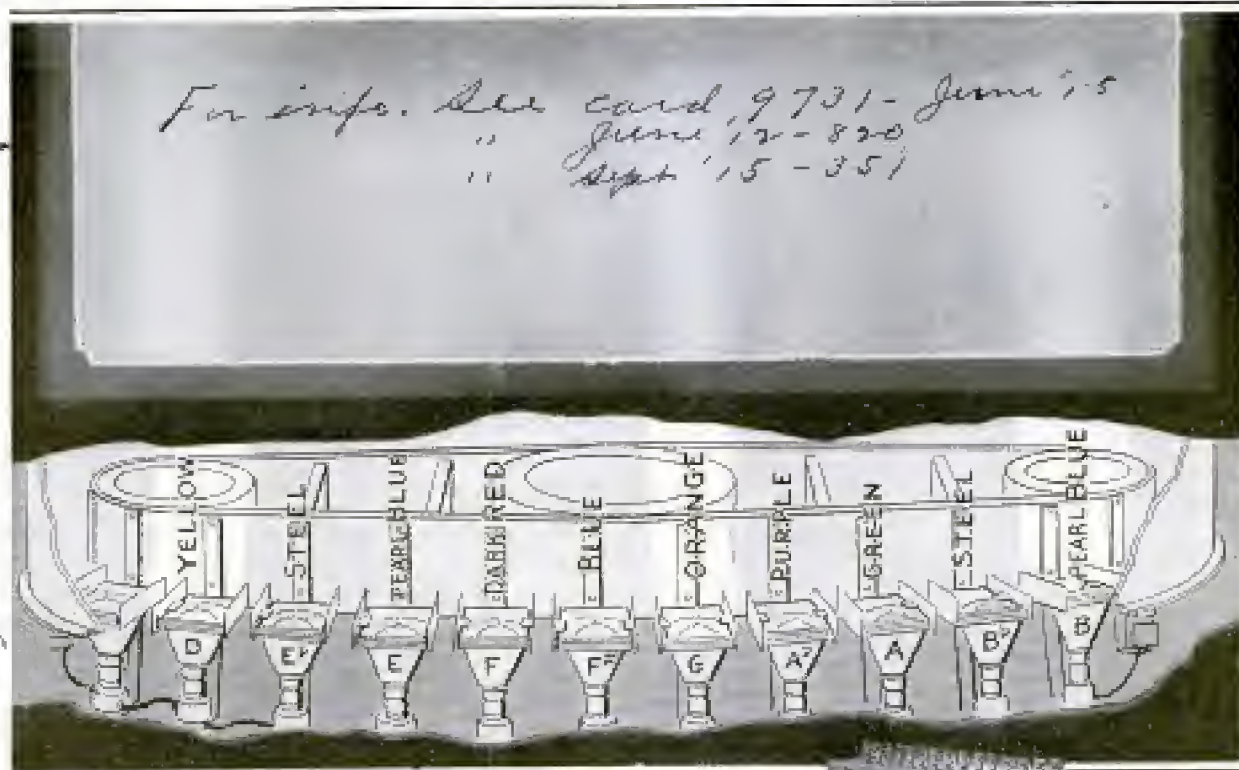 For info. See card 9731 - June '15
" June '12 - 820
" Sept '15 - 351
YELLOW STEEL PEARL BLUE DARK RED BLUE ORANGE PURPLE GREEN STEEL PEARL BLUE
D E♭ E F F♯ G A♭ A B♭ B